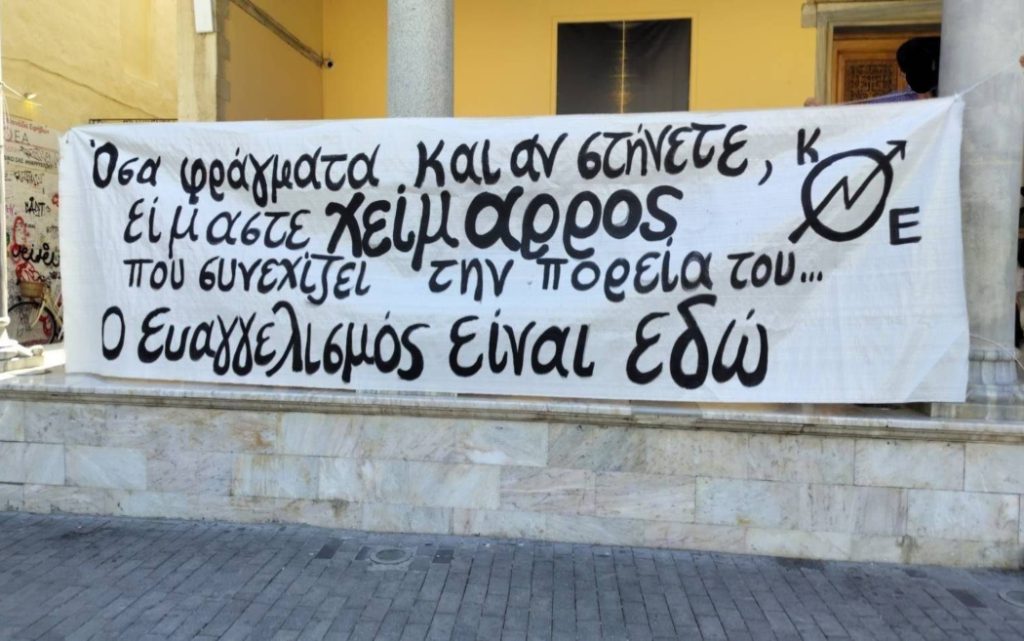 Όσα φράγματα και αν στήνετε,
είμαστε χείμαρρος
που συνεχίζει την πορεία του...
Ο Ευαγγελισμός είναι εδώ
Κ
Ε